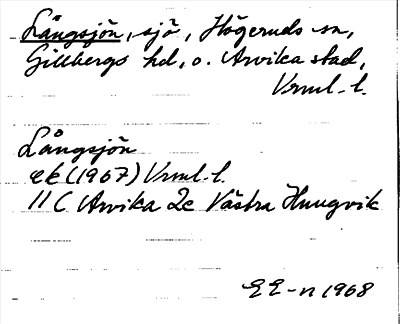 Långsjön, sjö, Högeruds sn,
Gillbergs hd, o. Arvika stad,
Vrml. l.
Långsjön
ek (1967) Vrml. l.
11 C Arvika 2c Västra Hungvik
EE-n 1968